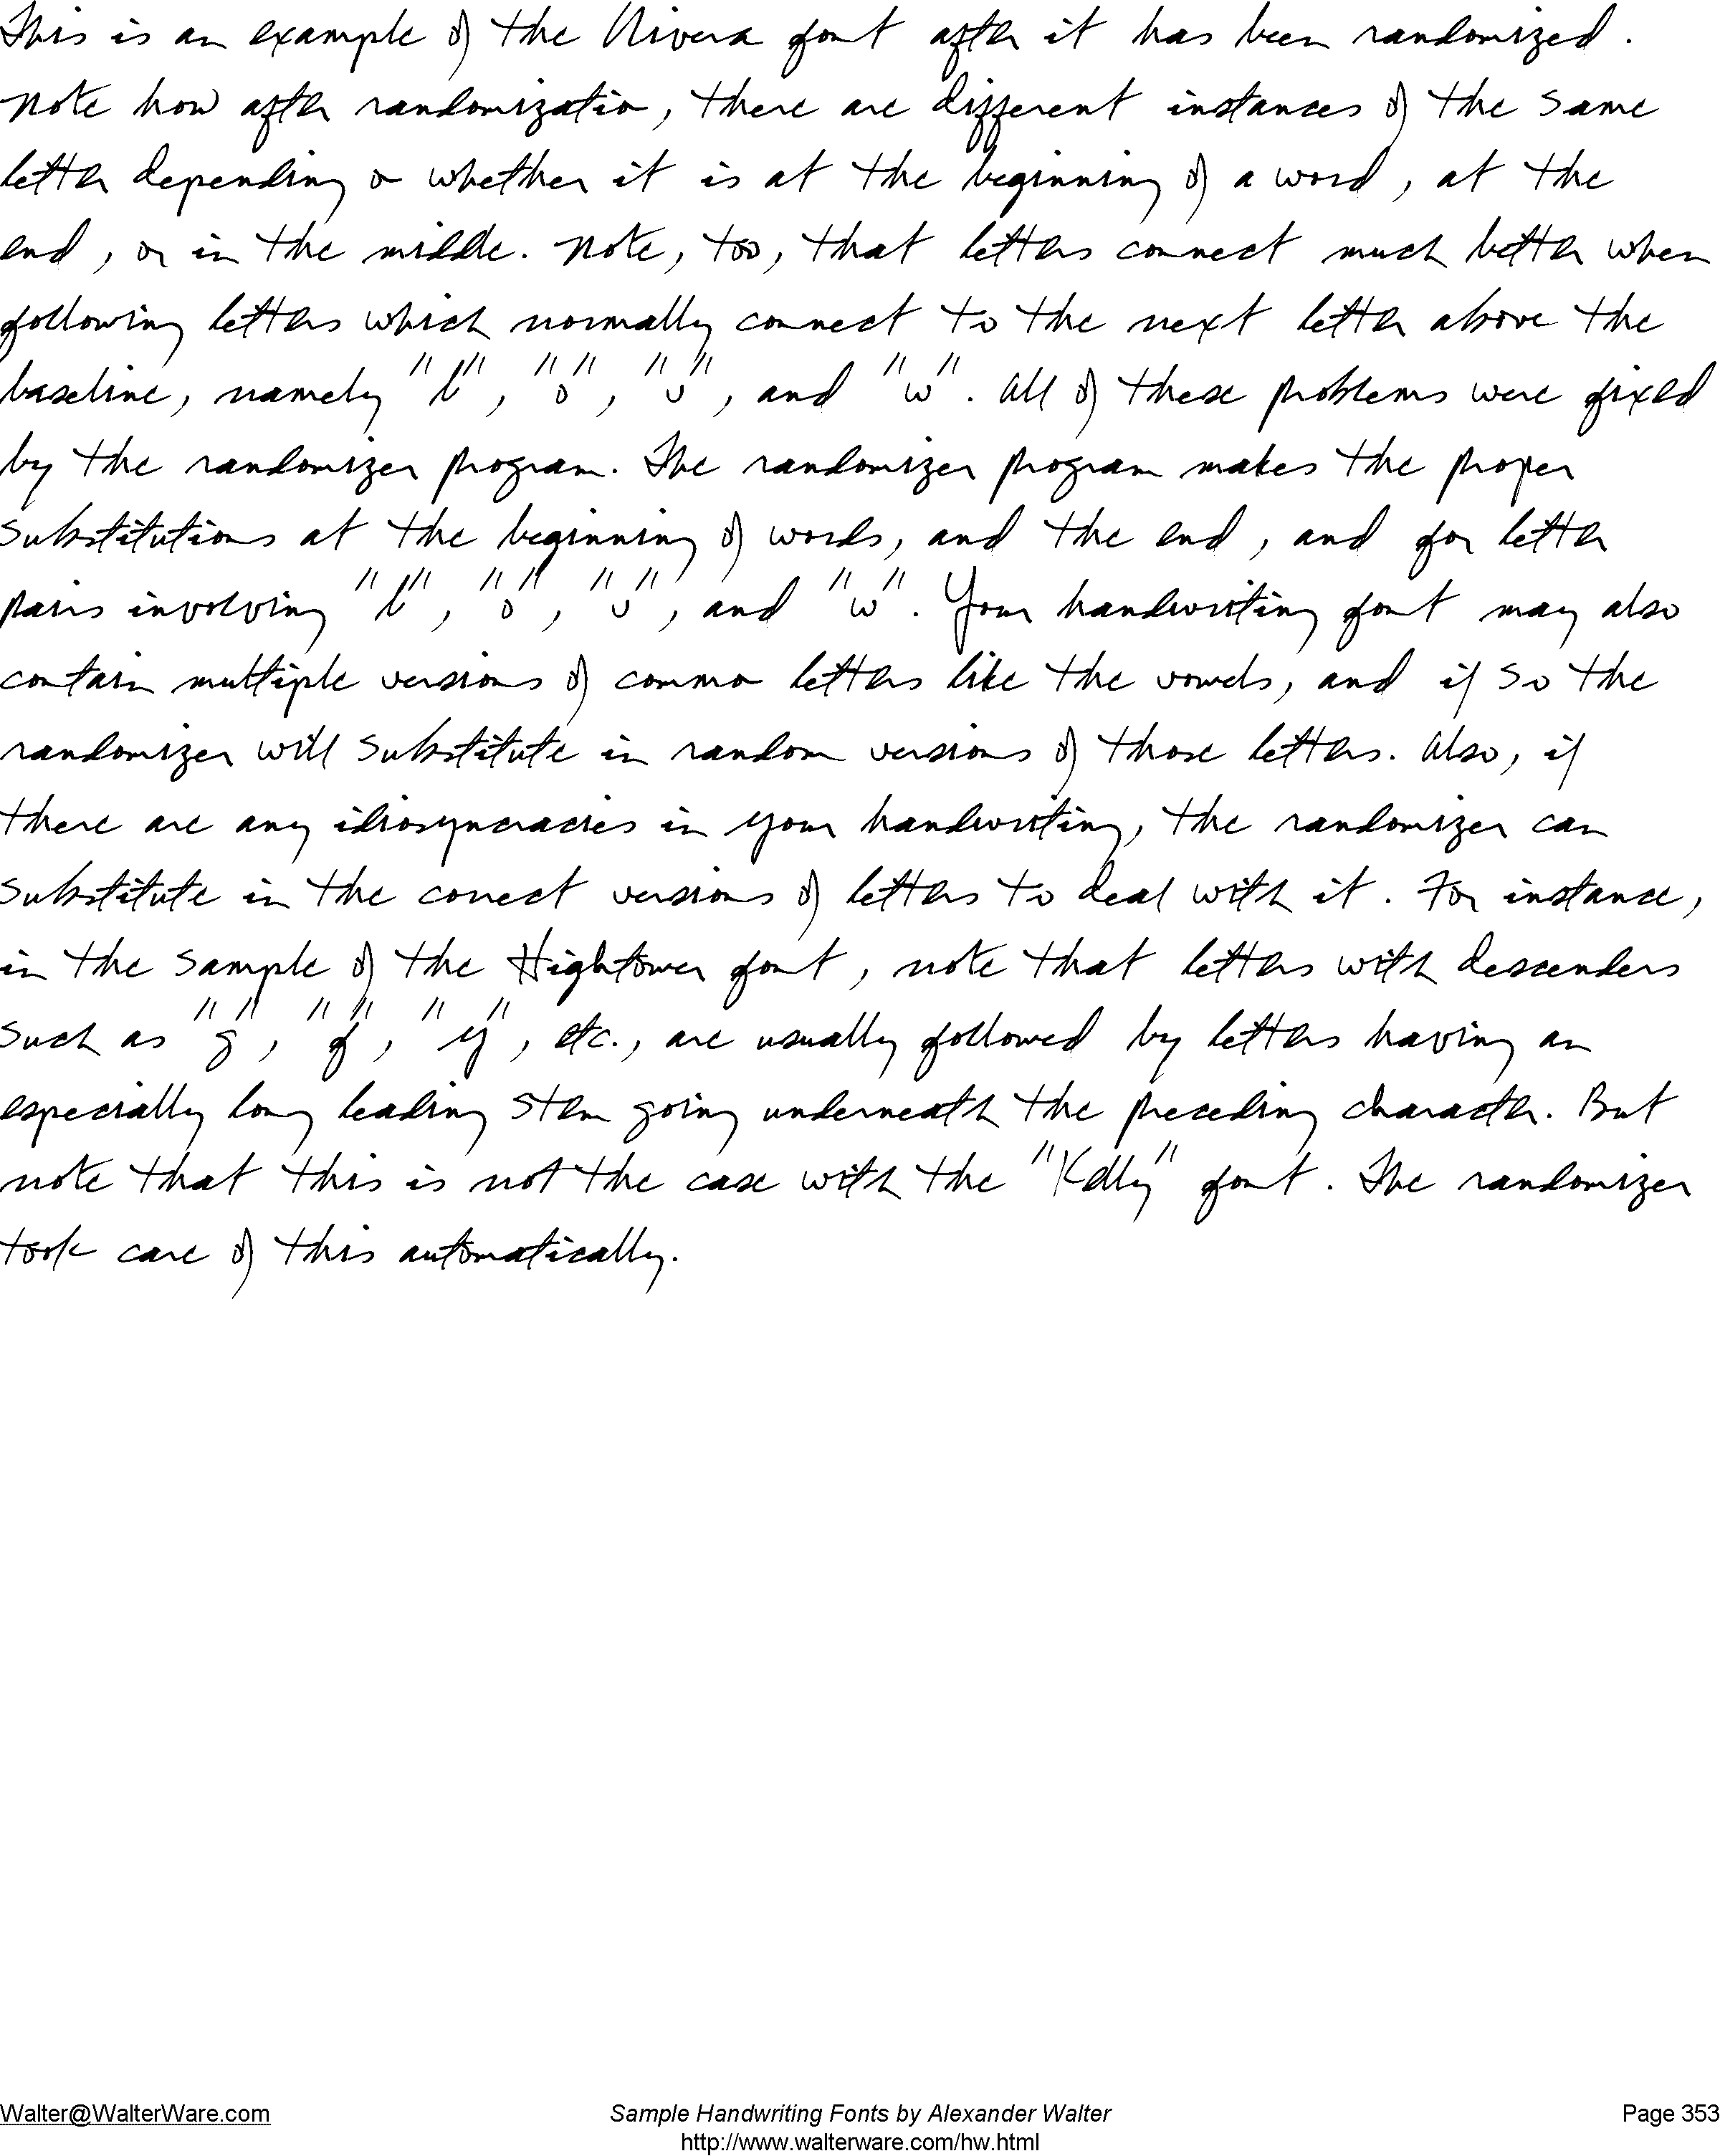 This is an example of the Nivera font after it has been randomized.
Note how after randomization, there are different instances of the same
letter depending on whether it is at the beginning of a word, at the
end, or in the middle. Note, too, that letters connect much better when
following letters which normally connect to the next letter above the
baseline, namely "b", "o", "v", and "w". All of these problems were fixed
by the randomizer program. The randomizer program makes the proper
substitutions at the beginning of words, and the end, and for letter
pairs involving "b", "o", "v", and "w". Your handwriting font may also
contain multiple versions of common letters like the vowels, and if so the
randomizer will substitute in random versions of those letters. Also, if
there are any idiosyncracies in your handwriting, the randomizer can
substitute in the correct versions of letters to deal with it. For instance,
in the sample of the Hightower font, note that letters with descenders
such as "g", "f", "y", etc., are usually followed by letters having an
especially long leading stem going underneath the preceding character. But
note that this is not the case with the "Kelly" font. The randomizer
took care of this automatically.
Walter@WalterWare.com Sample Handwriting Fonts by Alexander Walter Page 353
http://www.walterware.com/hw.html